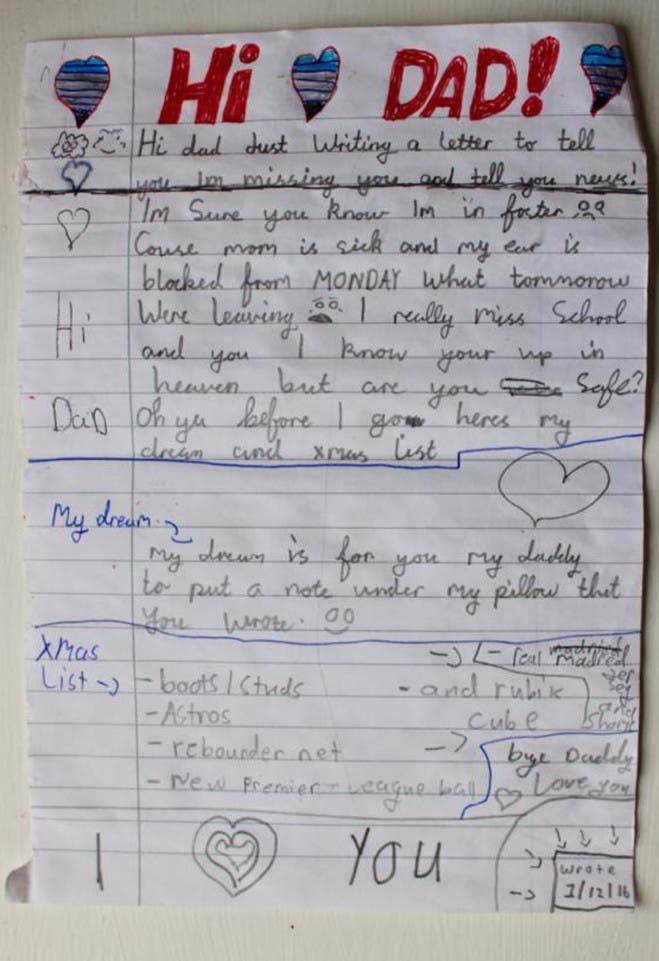 Hi DAD!
Hi dad Just Writing a letter to tell
you Im missing you and tell you news!
Im Sure you know Im in foster
Couse mom is sick and my ear is
blocked from MONDAY what tommorow
Were leaving I really miss School
and you I know your up in
heaven but are you Safe?
Hi
Dad
Oh ya before I go heres my
dream and xmas list
My dream
my dream is for you my daddy
to put a note under my pillow that
you wrote.
xmas
List
- boots/studs
- Astros
- rebounder net
- New Premier League ball
- real madred
and
Short
- and rubix
cube
bye Daddy
Love you
I YOU
wrote
1/12/16